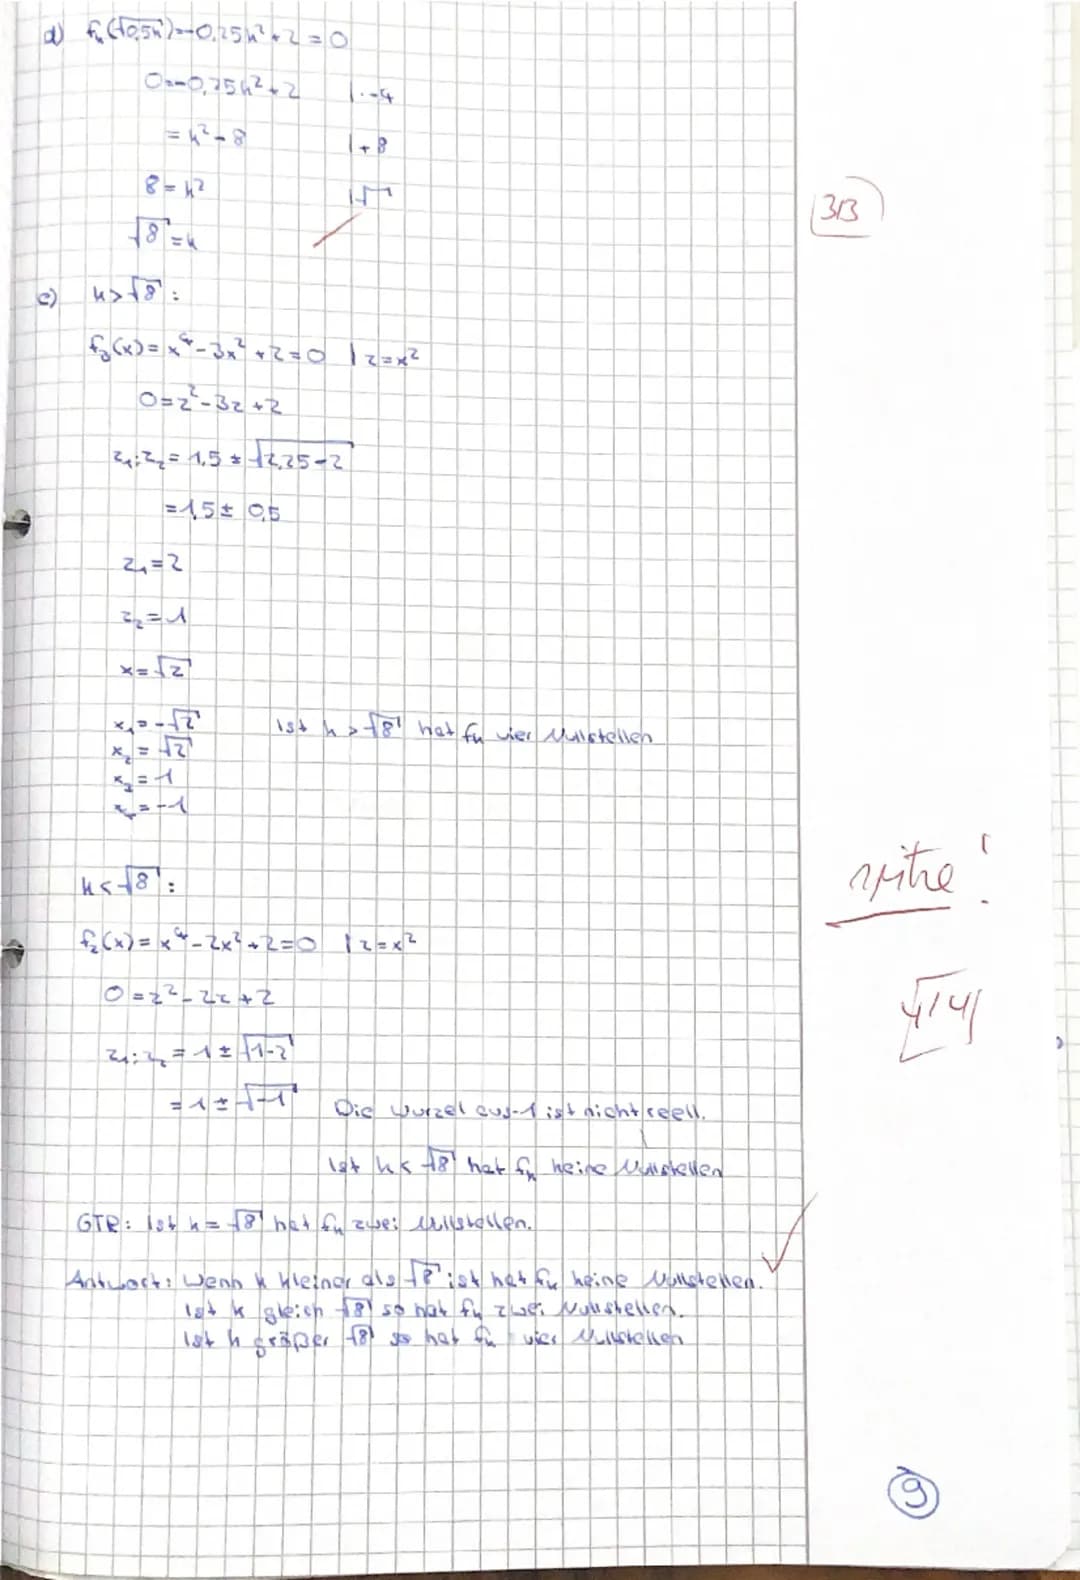 d) fₖ(√0,5k)=-0,25k²+2=0
0=-0,25k²+2 |·-4
=k²-8 |+8
8=k² |√
√8=k
3/3
e) k>√8:
f₃(x)=x⁴-3x²+2=0 |z=x²
0=z²-3z+2
z₁;z₂=1,5±√2,25-2
=1,5±0,5
z₁=2
z₂=1
x=√2
x₁=-√2
x₂=√2 Ist k>√8 hat fₖ vier Nullstellen
x₃=1
x₄=-1
spitze!
k<√8:
f₂(x)=x⁴-2x²+2=0 |z=x²
0=z²-2z+2
4/4
z₁;z₂=1±√1-2
=1±√-1 Die Wurzel aus-1 ist nicht reell.
Ist k<√8 hat fₖ keine Nullstellen
GTR: Ist k=√8 hat fₖ zwei Nullstellen.
Antwort: Wenn k kleiner als √8 ist hat fₖ keine Nullstellen.
Ist k gleich √8 so hat fₖ zwei Nullstellen.
Ist k größer √8 so hat fₖ vier Nullstellen
9